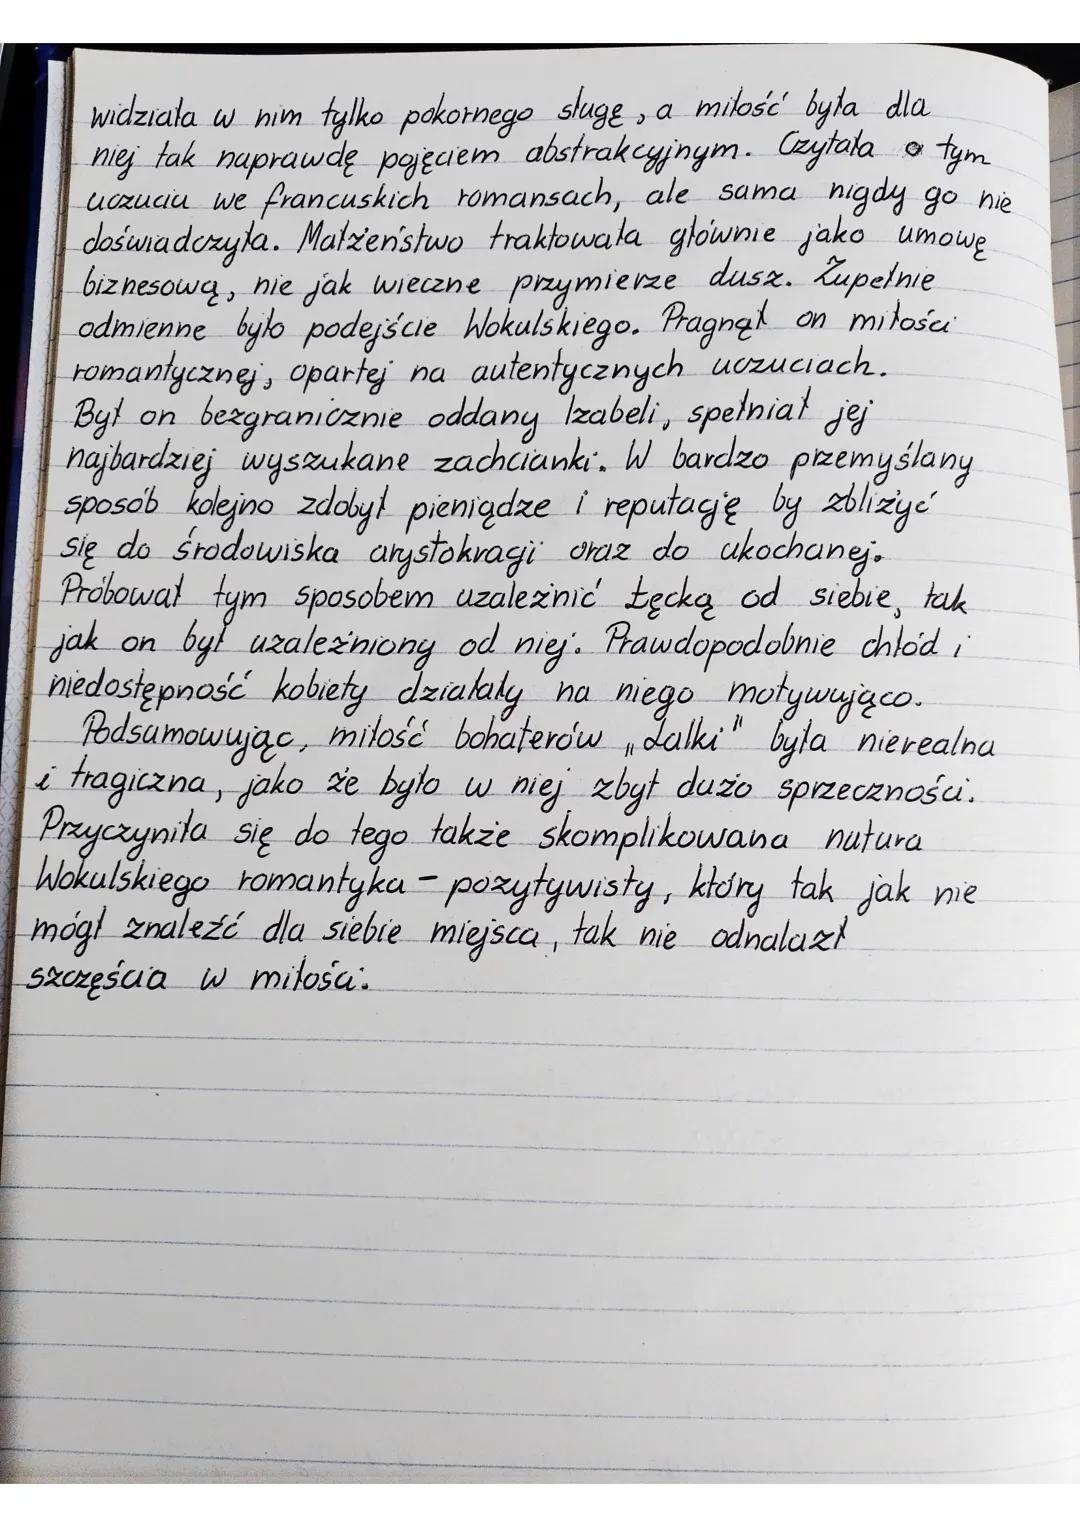 widziała w nim tylko pokornego sługę, a miłość była dla
niej tak naprawdę pojęciem abstrakcyjnym. Czytała o tym
uczuciu we francuskich romansach, ale sama nigdy go nie
doświadczyła. Małżeństwo traktowała głównie jako umowę
biznesową, nie jak wieczne przymierze dusz. Zupełnie
odmienne było podejście Wokulskiego. Pragnął on miłości
romantycznej, opartej na autentycznych uczuciach.
Był on bezgranicznie oddany Izabeli, spełniał jej
najbardziej wyszukane zachcianki. W bardzo przemyślany
sposób kolejno zdobył pieniądze i reputację by zbliżyć
się do środowiska arystokracji oraz do ukochanej.
Próbował tym sposobem uzależnić Łęcką od siebie, tak
jak on był uzależniony od niej. Prawdopodobnie chłód i
niedostępność kobiety działały na niego motywująco.
Podsumowując, miłość bohaterów „Lalki" była nierealna
i tragiczna, jako że było w niej zbyt dużo sprzeczności.
Przyczyniła się do tego także skomplikowana natura
Wokulskiego romantyka - pozytywisty, który tak jak nie
mógł znaleźć dla siebie miejsca, tak nie odnalazł
szczęścia w miłości.